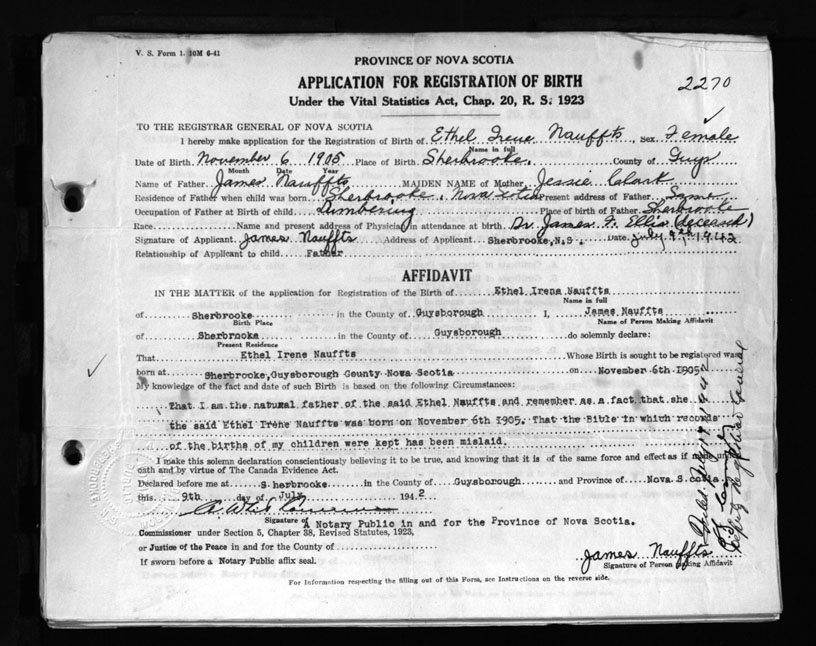 V. S. Form 1. 10M 6-41
PROVINCE OF NOVA SCOTIA
APPLICATION FOR REGISTRATION OF BIRTH
2270
Under the Vital Statistics Act, Chap. 20, R. S. 1923
TO THE REGISTRAR GENERAL OF NOVA SCOTIA
I hereby make application for the Registration of Birth of Ethel Irene Nauffts, Sex Female
Name in full
Date of Birth November 6 1905 Place of Birth Sherbrooke. County of Guys
Month Date Year
Name of Father James Nauffts MAIDEN NAME of Mother Jessie Clark
Residence of Father when child was born Sherbrooke, Nova Scotia Present address of Father Same
Occupation of Father at Birth of child Lumbering Place of birth of Father Sherbrooke
Race Name and present address of Physician in attendance at birth Dr. James F. Ellis (deceased)
Signature of Applicant James Nauffts Address of Applicant Sherbrooke, N.S. Date July 9th, 1942
Relationship of Applicant to child Father
AFFIDAVIT
IN THE MATTER of the application for Registration of the Birth of Ethel Irene Nauffts
Name in full
of Sherbrooke in the County of Guysborough I, James Nauffts
Birth Place Name of Person Making Affidavit
of Sherbrooke in the County of Guysborough do solemnly declare:
Present Residence
That Ethel Irene Nauffts Whose Birth is sought to be registered was
born at Sherbrooke, Guysborough County Nova Scotia on November 6th 1905
My knowledge of the fact and date of such Birth is based on the following Circumstances:
That I am the natural father of the said Ethel Nauffts and remember as a fact that she
the said Ethel Irene Nauffts was born on November 6th 1905. That the Bible in which records
of the births of my children were kept has been mislaid.
I make this solemn declaration conscientiously believing it to be true, and knowing that it is of the same force and effect as if made un
oath and by virtue of The Canada Evidence Act.
Declared before me at Sherbrooke in the County of Guysborough and Province of Nova Scotia
this 9th day of July 1942
Signature of A Notary Public in and for the Province of Nova Scotia.
Commissioner under Section 5, Chapter 38, Revised Statutes, 1923,
or Justice of the Peace in and for the County of
James Nauffts
Signature of Person Making Affidavit
If sworn before a Notary Public affix seal.
For Information respecting the filling out of this Form, see Instructions on the reverse side.
Deputy Registrar General